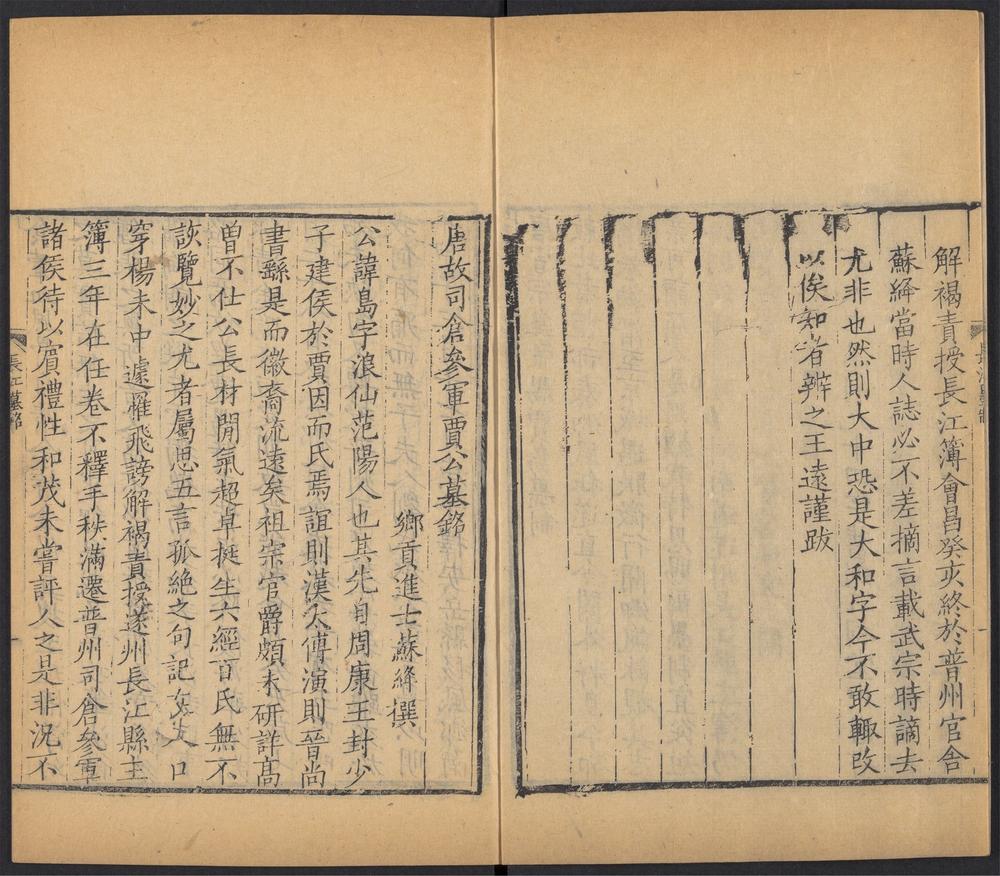 解褐責授長江簿會昌癸亥終於普州官舎
蘇絳當時人誌必不差摘言載武宗時謫去
尤非也然則大中恐是大和字今不敢輙改
以俟知者辨之王遠謹跋
唐故司倉參軍賈公墓銘
鄉貢進士蘇絳撰
公諱島字浪仙范陽人也其先自周康王封少
子建侯於賈因而氏焉誼則漢太傅演則晉尚
書繇是而徽裔流遠矣祖宗官爵頗未研詳髙
曽不仕公長材閒氣超卓挺生六經百氏無不
該覽妙之尤者屬思五言孤絶之句記在人口
穿楊未中遽罹飛謗解褐責授遂州長江縣主
簿三年在任卷不釋手秩滿遷普州司倉參軍
諸侯待以賓禮性和茂未嘗評人之是非況不
長江墓銘